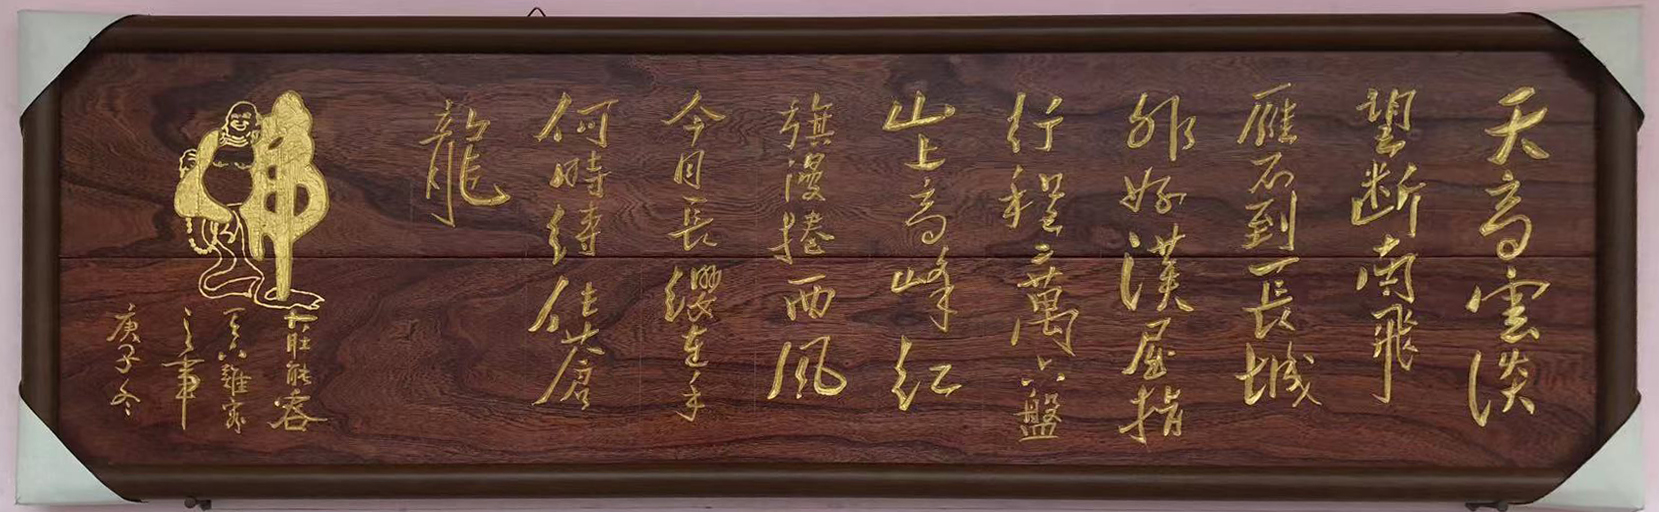 天高雲淡
望断南飛
雁不到長城
非好漢屈指
行程二萬六盤
山上高峰紅
旗漫捲西風
今日長纓在手
何時縛住蒼
龍
佛
肚能容
天下難容
之事
庚子冬